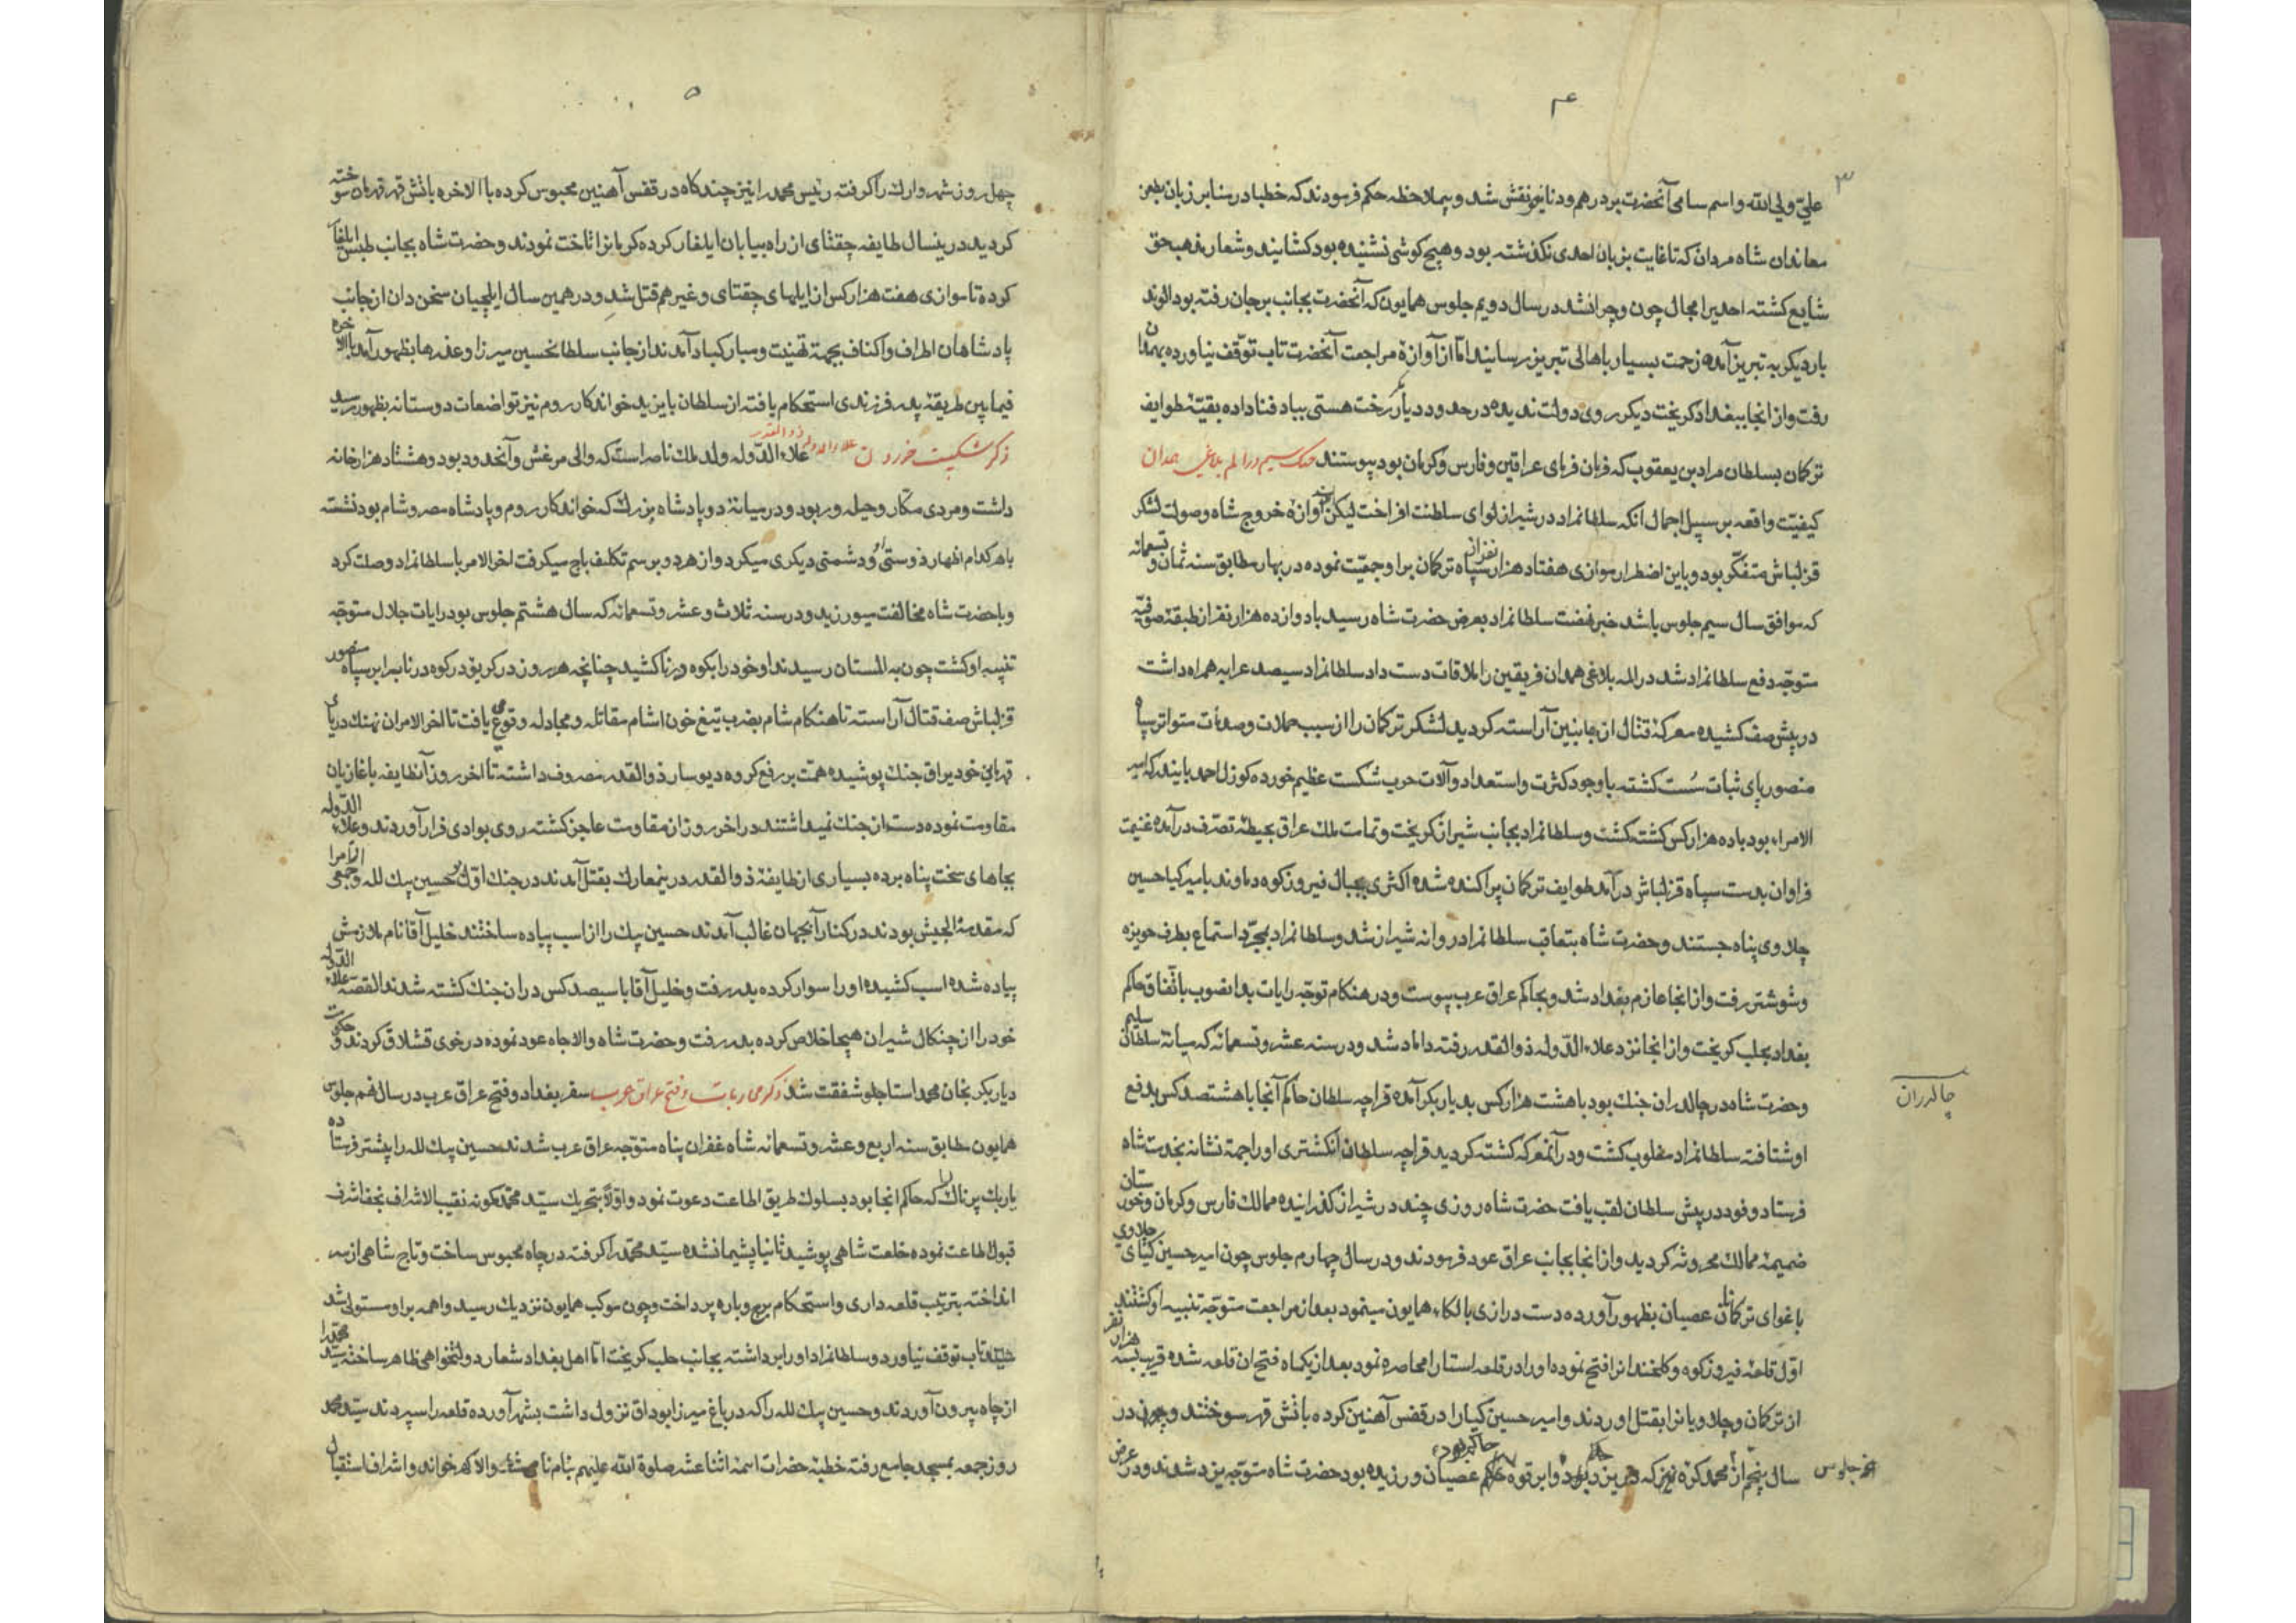 ۴
۳
علی ولی الله و اسم سامی آنحضرت بر درهم و دنانیر نقش شد و بملاحظه حکم فرمودند که خطبا در منابر زبان بطعن
معاندان شاه مردان که تا غایت بزبان احدی نکذشته بود و هیچ کوشی نشنیده بود کشایند و شعار مذهب حق
شایع کشته احدیرا مجال چون و چرا نشد در سال دویم جلوس همایون که آنحضرت بجانب برجان رفته بود الوند
بار دیکر به تبریز آمده زحمت بسیار باهالی تبریز رسانید اما از آوازه مراجعت آنحضرت تاب توقف نیاورده بهمدان
رفت و از انجا ببغداد کریخت دیکر روی دولت ندیده در حدود دیار بکر رخت هستی بباد فنا داده بقیه طوایف
ترکمان بسلطان مراد بن یعقوب که فرمان فرمای عراقین و فارس و کرمان بود پیوستند جنک سیم در المه بلاغی همدان
کیفیت واقعه بر سبیل اجمال انکه سلطانمراد در شیراز لوای سلطنت افراخت لیکن از آوازه خروج شاه و صولت لشکر
قزلباش متفکر بود و با این اضطرار موازی هفتاد هزار نفر از سپاه ترکمان بر او جمعیت نموده در بهار مطابق سنه ثمان و تسعمائه
که موافق سال سیم جلوس باشد خبر نهضت سلطانمراد بعرض حضرت شاه رسید با دوازده هزار نفر از طبقه صوفیه
متوجه دفع سلطانمراد شد در المه بلاغی همدان فریقین را ملاقات دست داد سلطانمراد سیصد عرابه همراه داشت
در پیش صف کشیده معرکه قتال از جانبین آراسته کردید لشکر ترکمان را از سبب حملات و صدمات متواتر سپاه
منصور پای ثبات سست کشته با وجود کثرت و استعداد و آلات حرب شکست عظیم خورده کوزل احمد بایندر که امیر
الامراء بود با ده هزار کس کشته کشت و سلطانمراد بجانب شیراز کریخت و تمامت ملک عراق بحیطه تصرف درآمده غنیمت
فراوان بدست سپاه قزلباش درآمد طوایف ترکمان پراکنده شده اکثری بجبال فیروزکوه و دماوند بامیر کیا حسین
چلاوی پناه جستند و حضرت شاه بتعاقب سلطانمراد روانه شیراز شد و سلطانمراد بمجرد استماع بطرف حویزه
و شوشتر رفت و از انجا عازم بغداد شد و بحاکم عراق عرب پیوست و در هنکام توجه رایات بدانصوب باتفاق حاکم
بغداد بحلب کریخت و از انجا نزد علاء الدوله ذو القدر رفته داماد شد و در سنه عشر و تسعمائه که میانه سلطان سلیم
و حضرت شاه در چالدران جنک بود با هشت هزار کس بدیار بکر آمده قراچه سلطان حاکم آنجا با هشتصد کس بدفع
چالدران
او شتافته سلطانمراد مغلوب کشت و در آنمعرکه کشته کردید قراچه سلطان انکشتری او را جهة نشانه بخدمت شاه
فرستاد و خود در پیش سلطان لقب یافت حضرت شاه روزی چند در شیراز کذرانیده ممالک فارس و کرمان و خوزستان
ضمیمه ممالک محروسه کردید و از انجا بجانب عراق عود فرمودند و در سال چهارم جلوس چون امیر حسین کیای چلاوی
باغوای ترکمانان عصیان بظهور آورده دست درازی بالکاء همایون مینمود بعد از مراجعت متوجه تنبیه او کشتند
اول قلعه فیروزکوه و کلخندانرا فتح نموده او را در قلعه استا را محاصره نمود بعد از یکماه فتح ان قلعه شده قریب بسه هزار نفر
از ترکمان و چلاویانرا بقتل اوردند و امیر حسین کیا را در قفس آهنین کرده باتش قهر سوختند و چون در
سال پنجم از جلوس محمد کره نیز که در یزد بود و ابرقوه حاکم بود عصیان ورزیده بود حضرت شاه متوجه یزد شدند و در عرض
۵
چهل روز شهر و ارک را کرفته رئیس محمد را نیز چند کاه در قفس آهنین محبوس کرده با الاخره باتش قهر قهرمان سوخته
کردید درینسال طایفه چقتای از راه بیابان ایلغار کرده کرمانرا تاخت نمودند و حضرت شاه بجانب طبس ایلغار
کرده تا موازی هفت هزار کس از ایلهای چقتای و غیرهم قتل شد و در همین سال ایلچیان سخن دان از جانب
پادشاهان اطراف و اکناف بجهة تهنیت و مبارکباد آمدند از جانب سلطانحسین میرزا و عذرها بظهور آمد با الاخره
فیمابین طریقه پدر فرزندی استحکام یافته از سلطان بایزید خواندکار روم نیز تواضعات دوستانه بظهور رسید
ذکر شکست خوردن علاء الدوله ذو القدر علاء الدوله ولد ملک ناصر است که والی مرعش و آنحدود بود و هشتاد هزار خانه
داشت و مردی مکار و حیله ور بود و در میانه دو پادشاه بزرک که خواندکار روم و پادشاه مصر و شام بود نشسته
با هر کدام اظهار دوستی او و دشمنی دیکری میکرد و از هر دو برسم تکلف باج میکرفت اخر الامر با سلطانمراد وصلت کرد
و با حضرت شاه مخالفت میورزید و در سنه ثلاث و عشر و تسعمائه که سال هشتم جلوس بود رایات جلال متوجه
تنبیه او کشت چون به البستان رسیدند او خود را بکوه درنا کشید چنانچه هر روز در کریوه در کوه درنا برابر سپاه منصور
قزلباش صف قتال آراسته تا هنکام شام بضرب تیغ خون اشام مقاتله و مجادله وقوع می یافت تا اخر الامر ان نهنک دریای
قهر این خود یراق جنک پوشیده همت بر رفع کروه دیوسار ذو القدر مصروف داشته تا اخر روز آنطایفه با غازیان
مقاومت نموده دست از جنک نمیداشتند در اخر روز از مقاومت عاجز کشته روی بوادی فرار آوردند و علاء الدوله
بجاهای سخت پناه برده بسیاری از طایفه ذو القدر در ینمعارک بقتل آمدند در جنک اول بر حسین بیک لله و جمعی از امرا
که مقدمة الجیش بودند در کنار آبجهان غالب آمدند حسین بیک را از اسب پیاده ساختند خلیل آقا نام ملازمش
پیاده شده اسب کشیده او را سوار کرده بدر رفت و خلیل آقا با سیصد کس در ان جنک کشته شدند القصه علاء الدوله
خود را از چنکال شیران هیجا خلاص کرده بدر رفت و حضرت شاه والاجاه عود نموده در خوی قشلاق کردند و حکومت
دیار بکر بخان محمد استاجلو شفقت شد ذکر محاربات و فتح عراق عرب سفر بغداد و فتح عراق عرب در سال نهم جلوس
همایون مطابق سنه اربع و عشر و تسعمائه شاه غفران پناه متوجه عراق عرب شدند حسین بیک لله را پیشتر فرستاده
باربک پرناک را که حاکم انجا بود بسلوک طریق اطاعت دعوت نمود و اولا بتحریک سید محمد کمونه نقیب الاشراف نجف اشرف
قبول اطاعت نموده خلعت شاهی پوشید ثانیا پشیمان شده سید محمد را کرفته در چاه محبوس ساخت و تاج شاهی از سر
انداخته بترتیب قلعه داری و استحکام برج و باره پرداخت و چون موکب همایون نزدیک رسید واهمه بر او مستولی شد
تاب توقف نیاورد و سلطانمراد او را برداشته بجانب حلب کریخت اما اهل بغداد شعار دولتخواهی ظاهر ساخته سید محمد را
از چاه بیرون آوردند و حسین بیک لله را که در باغ میرزا بوداق نزول داشت بشهر آورده قلعه را سپردند سید محمد
روز جمعه بمسجد جامع رفته خطبه حضرات ائمه اثنا عشر صلوة الله علیهم بنام نامی والا کهر خواند و اشراف استقبال